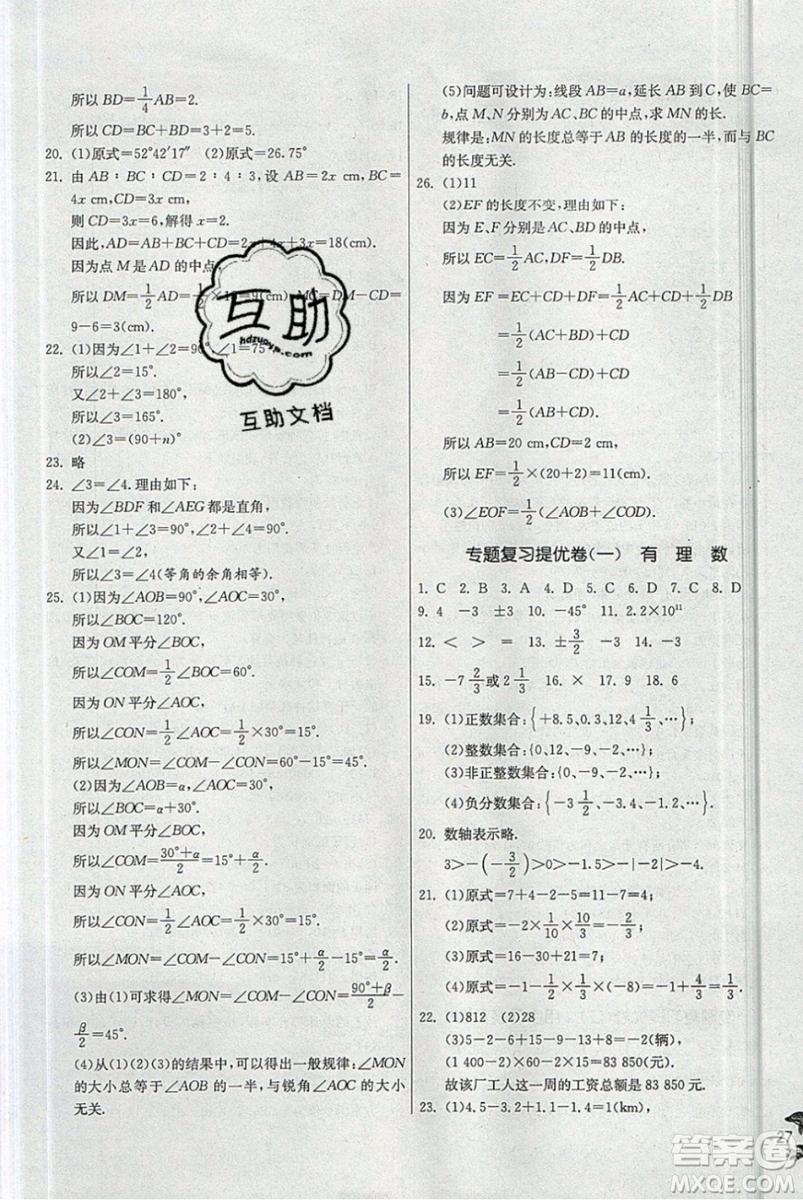 所以 BD=1/4AB=2.
所以 CD=BC+BD=3+2=5.
20. (1)原式=52°42′17″ (2)原式=26.75°
21. 由 AB∶BC∶CD=2∶4∶3,设 AB=2x cm,BC=
4x cm,CD=3x cm,
则 CD=3x=6,解得 x=2.
因此,AD=AB+BC+CD=2x+4x+3x=18(cm).
因为点 M 是 AD 的中点,
所以 DM=1/2AD=1/2×18=9(cm) MC=DM-CD=
9-6=3(cm).
22. (1)因为∠1+∠2=90°,∠1=75°
所以∠2=15°.
又∠2+∠3=180°,
所以∠3=165°.
(2)∠3=(90+n)°
23. 略
24. ∠3=∠4.理由如下:
因为∠BDF 和∠AEG 都是直角,
所以∠1+∠3=90°,∠2+∠4=90°.
又∠1=∠2,
所以∠3=∠4(等角的余角相等).
25. (1)因为∠AOB=90°,∠AOC=30°,
所以∠BOC=120°.
因为 OM 平分∠BOC,
所以∠COM=1/2∠BOC=60°.
因为 ON 平分∠AOC,
所以∠CON=1/2∠AOC=1/2×30°=15°.
所以∠MON=∠COM-∠CON=60°-15°=45°.
(2)因为∠AOB=α,∠AOC=30°,
所以∠BOC=α+30°.
因为 OM 平分∠BOC,
所以∠COM=(30°+α)/2=15°+α/2.
因为 ON 平分∠AOC,
所以∠CON=1/2∠AOC=1/2×30°=15°.
所以∠MON=∠COM-∠CON=15°+α/2-15°=α/2.
(3)由(1)可求得∠MON=∠COM-∠CON=(90°+β)/2-
β/2=45°.
(4)从(1)(2)(3)的结果中,可以得出一般规律:∠MON
的大小总等于∠AOB 的一半,与锐角∠AOC 的大小
无关.
(5)问题可设计为:线段 AB=a,延长 AB 到 C,使 BC=
b,点 M、N 分别为 AC、BC 的中点,求 MN 的长.
规律是:MN 的长度总等于 AB 的长度的一半,而与 BC
的长度无关.
26. (1)11
(2)EF 的长度不变,理由如下:
因为 E、F 分别是 AC、BD 的中点,
所以 EC=1/2AC,DF=1/2DB.
因为 EF=EC+CD+DF=1/2AC+CD+1/2DB
=1/2(AC+BD)+CD
=1/2(AB-CD)+CD
=1/2(AB+CD)
所以 AB=20 cm,CD=2 cm,
所以 EF=1/2×(20+2)=11(cm)
(3)∠EOF=1/2(∠AOB+∠COD).
专题复习提优卷(一) 有 理 数
1. C 2. B 3. A 4. C 5. D 6. C 7. B 8. D
9. 4 -3 ±3 10. -45° 11. 2.2×10¹¹
12. < > = 13. ±3/2 -3 14. -3
15. -7 2/3或2 1/3 16. × 17. 9 18. 6
19. (1)正数集合:{+8.5,0.3,12,4 1/3,…};
(2)整数集合:{0,12,-9,-2,…};
(3)非正整数集合:{0,-9,-2,…};
(4)负分数集合:{-3 1/2,-3.4,-1.2,…}
20. 数轴表示略.
3>-(-3/2)>0>-1.5>-|-2|>-4.
21. (1)原式=7+4-2-5=11-7=4;
(2)原式=-2×1/10×10/3=-2/3;
(3)原式=16-30+21=7;
(4)原式=-1-1/2×1/3×(-8)=-1+4/3=1/3.
22. (1)812 (2)28
(3)5-6-2+15-9-13+8=-2(辆),
(1 400-2)×60-2×15=83 850(元).
故该厂工人这一周的工资总额是 83 850 元.
23. (1)4.5-3.2+1.1-1.4=1(km),
互助
hdzuoye.com
互助文档
27
答案圈
MXQE.COM